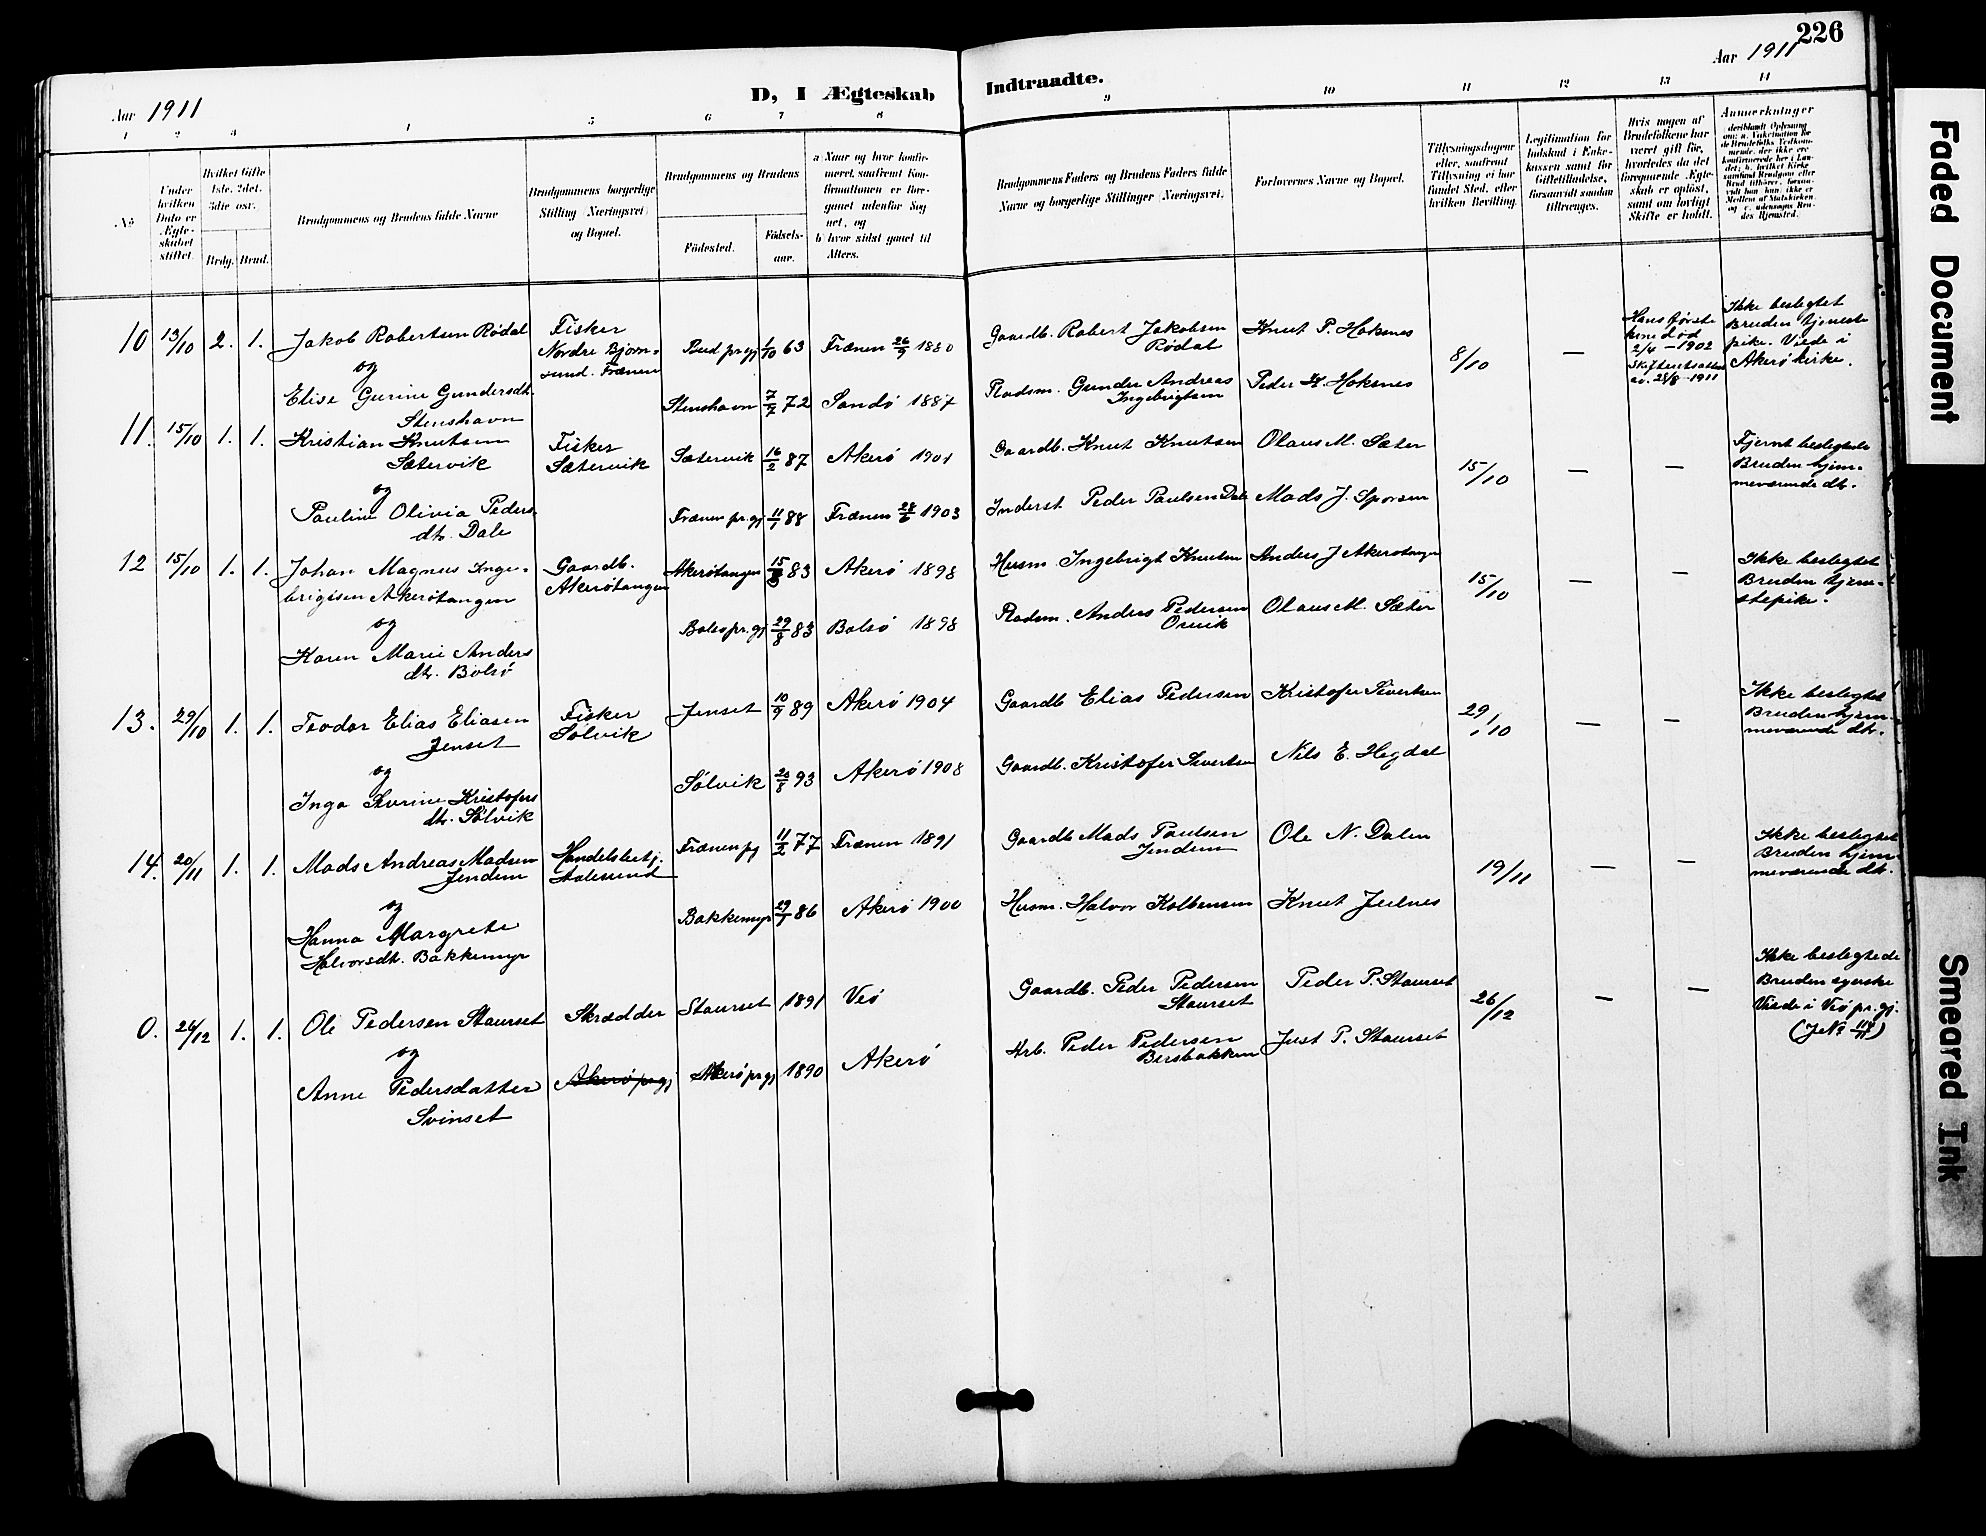 226
Aar 1911
D, I Ægteskab Indtraadte.
Aar 1911
1 2 3 4 5 6 7 8 9 10 11 12 13 14
No
Under
hvilken
Dato er
Ægte-
skabet
stiftet.
Hvilket Gifte
1ste, 2det,
3die osv.
Brdg. Brud.
Brudgommens og Brudens fulde Navne
Brudgommens borgerlige
Stilling (Næringsvei)
og Bopæl.
Brudgommens og Brudens
Födested.
Födsels-
aar.
a Naar og hvor konfir-
meret, saafremt Kon-
firmationen er fore-
gaaet udenfor Sog
net, og
b hvor sidst gaaet til
Alters.
Brudgommens Faders og Brudens Faders fulde
Navne og borgerlige Stillinger (Næringsvei).
Forlovernes Navne og Bopæl.
Tillysningsdagene
eller, saafremt
Tillysning ei har
fundet Sted, efter
hvilken Bevilling.
Legitimation for
Indskud i Enke-
kassen samt for
Giftetilladelse,
forsaavidt saadan
tiltrænges.
Hvis nogen af
Brudefolkene har
været gift før,
hvorledes da det
foregaaende Ægte-
skab er opløst,
samt om lovligt
Skifte er holdt.
Anmærkninger
10 13/10 2. 1. Jakob Robertsen Rødal
og
Elise Gurine Gundersdt.
Stenshavn
Fisker
Nordre Bjørn-
sund. Frænen
Bud pr.gj 1/10 63 Frænen 26/9 1880
Stenshavn 7/7 72 Sandø 1887
Gaardb. Robert Jakobsen
Rødal
Knut P. Hoksnes
Gunder Andreas
Ingebrigtsen
Peder H. Hoksnes
8/10
—
Hans første
kone død
2/4 - 1902
Skifteretsattest
av. 28/8 1911
Ikke beslegtet
Bruden tjeneste
pike. Viede i
Akerø kirke.
11. 15/10 1. 1. Kristian Knutsen
Sætervik
og
Pauline Olivia Peders
dtr. Dale
Fisker
Sætervik
Sætervik 16/2 87 Akerø 1901
Frænen pr.gj 11/1 88 Frænen 28/6 1903
Gaardb. Knut Knutsen Olaus M. Sæter
Inderst Peder Paulsen Dale Mads J. Sporsem
15/10
— —
Fjernt beslegtede
Bruden hjem-
meværende dtr.
12 15/10 1. 1. Johan Magnus Inge-
brigtsen Akerøtangen
og
Karen Marie Anders
dtr. Bolsø
Gaardb.
Akerøtangen
Akerøtangen 83 Akerø 1898
Bolsø pr.gj 29/8 83 Bolsø 1898
Husm. Ingebrigt Knutsen Anders J Akerøtangen
Anders Pedersen
Orvik
Olaus M. Sæter
15/10
— —
Ikke beslegtet
Bruden tjene-
stepike.
13. 29/10 1. 1. Teodor Elias Eliasen
Jenset
og
Inga Sivrine Kristofers
dtr. Sølvik
Fisker
Sølvik
Jenset 10/9 89 Akerø 1904
Sølvik 20/8 93 Akerø 1908
Gaardb Elias Pedersen Kristofer Sivertsen
Gaardb. Kristofer Sivertsen Nils E. Hegdal
29/10
— —
Ikke beslegtet
Bruden hjem-
meværende dtr.
14. 20/11 1. 1. Mads Andreas Madsen
Jendem
og
Hanna Margrete
Halvorsdt. Bakkemyr
Handelsbetj.
Aalesund
Frænen pg 11/2 77 Frænen 1891
Bakkemyr 29/1 86 Akerø 1900
Gaardb Mads Paulsen
Jendem
Ole N. Dalen
Husm. Halvor Kolbensen Knut Julnes
19/11
— —
Ikke beslegtet
Bruden hjem-
meværende dtr.
0. 26/12 1. 1. Ole Pedersen Staurset
og
Anne Pedersdatter
Svinset
Skrædder
Akerø pr.gj
Staurset 1891 Veø
Akerø pr.gj 1890 Akerø
Gaardb. Peder Pedersen
Staurset
Peder P. Staurset
Arb. Peder Pedersen
Bersbakken
Just P. Staurset
26/12
— —
Ikke beslegtede
Bruden syerske
Viede i Veø pr.gj.
Faded Document
Smeared Ink